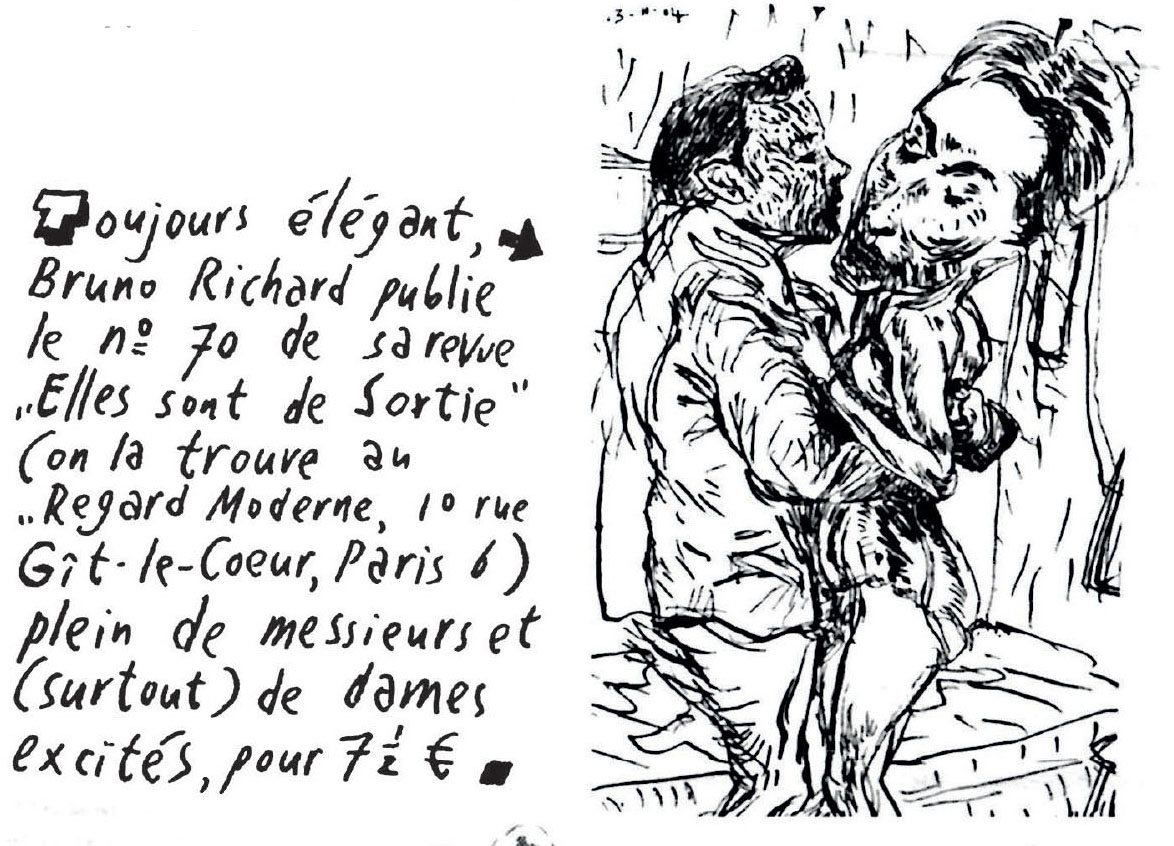 Toujours élégant,
Bruno Richard publie
le nº 70 de sa revue
„Elles sont de Sortie"
(on la trouve au
„Regard Moderne, 10 rue
Gît-le-Coeur, Paris 6)
plein de messieurs et
(surtout) de dames
excités, pour 7 ½ €